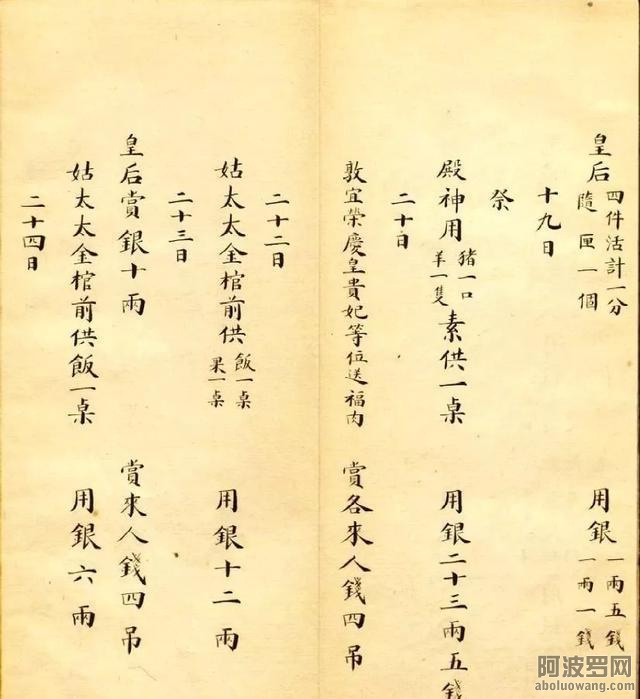 皇后四件活計一分隨匣一個 用銀一兩五錢一兩一錢
十九日
祭
殿神用豬一口羊一隻素供一桌 用銀二十三兩五錢
二十日
敦宜榮慶皇貴妃等位送福肉 賞各來人錢四吊
二十二日
姑太太金棺前供飯一桌果一桌 用銀十二兩
二十三日
皇后賞銀十兩 賞來人錢四吊
姑太太金棺前供飯一桌 用銀六兩
二十四日
阿波罗网
aboluowang.com